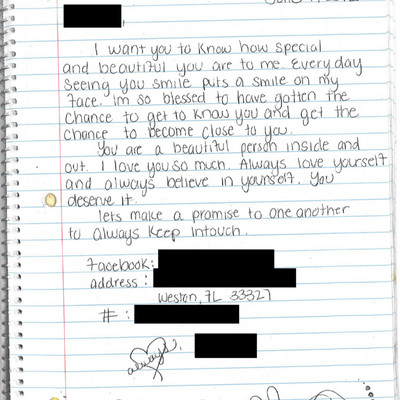 I want you to know how special
and beautiful you are to me. Everyday
seeing you smile puts a smile on my
face. Im so blessed to have gotten the
chance to get to know you and get the
chance to become close to you.
You are a beautiful person inside and
out. I love you so much. Always love yourself
and always believe in yourself. You
deserve it.
lets make a promise to one another
to always keep intouch.
Facebook:
address:
Weston, FL 33327
#:
always,